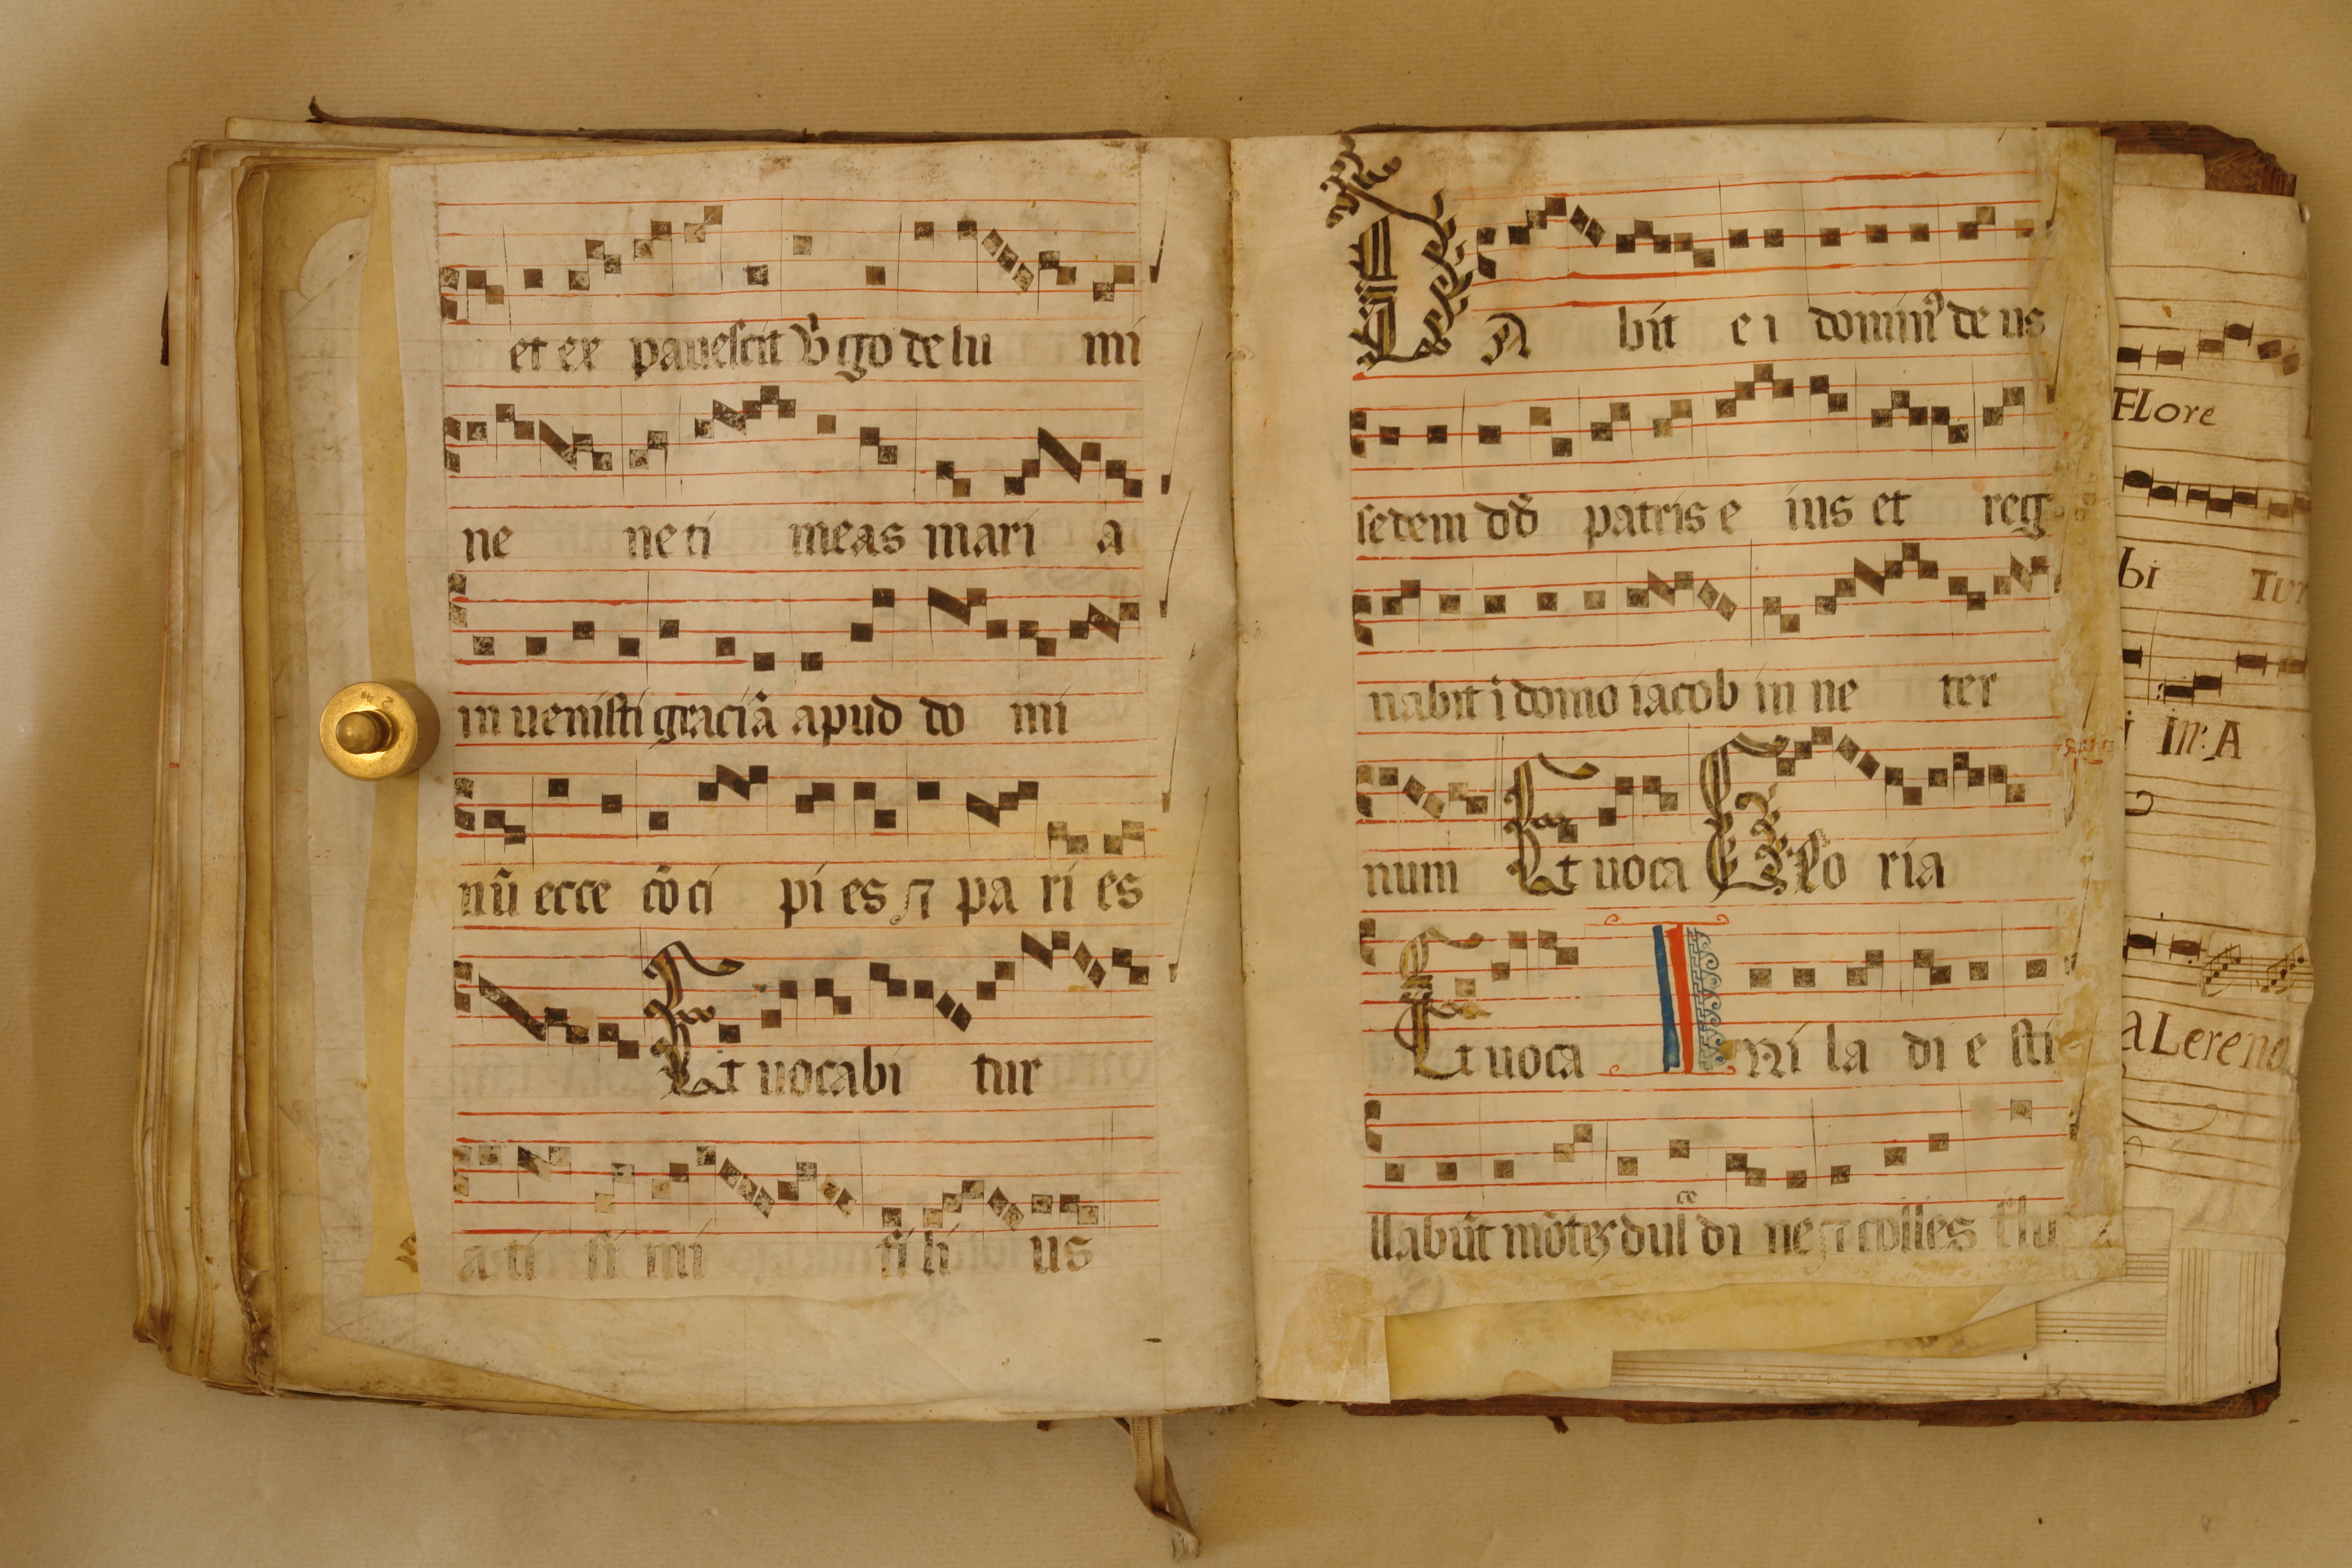 et ex pauescit v̾go de lu mi
ne ne ti meas mari a
in uenisti graciã apud do mi
nũ ecce cõ ci pi es ⁊ pa ri es
Et uocabi tur
a ti si mi fi li us
DA bit e i dominꝰ de us
sedem dd̃ patris e ius et reg
nabit ĩ domo iacob in ne ter
num Et uoca Glo ria
Et uoca IN i la di e sti
llabũt mõtes dul ce di ne ⁊ colles flu
FLore
bi TVR
i in: A
a Lereno